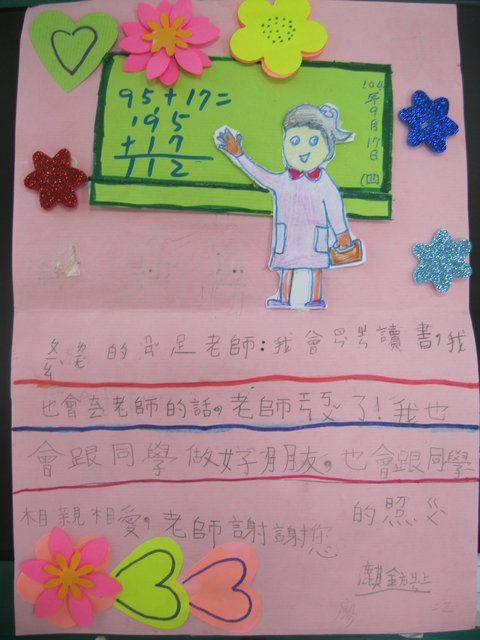 95+17=
195
+17
112
104年9月17日(四)
的 足老師:我會 讀書,我
也會去老師的話,老師 了!我也
會跟同學做好朋友,也會跟同學
相親相愛,老師謝謝您 的照
廖